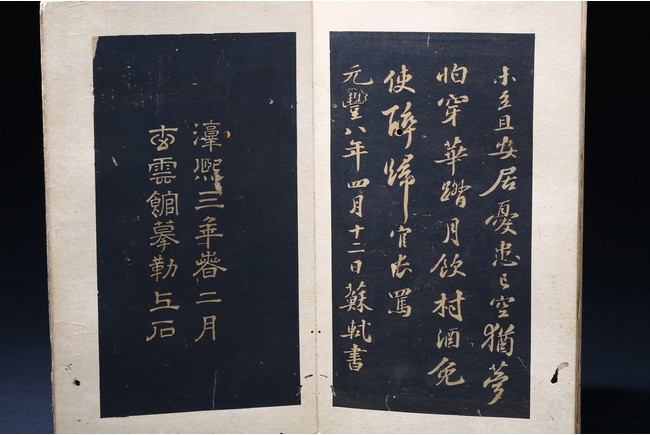 未至且安居憂患已空猶夢
怕穿華踏月飲村酒免
使醉歸官長罵
元豐八年四月十二日蘇軾書
淳熙三年春二月
雲館摹勒上石